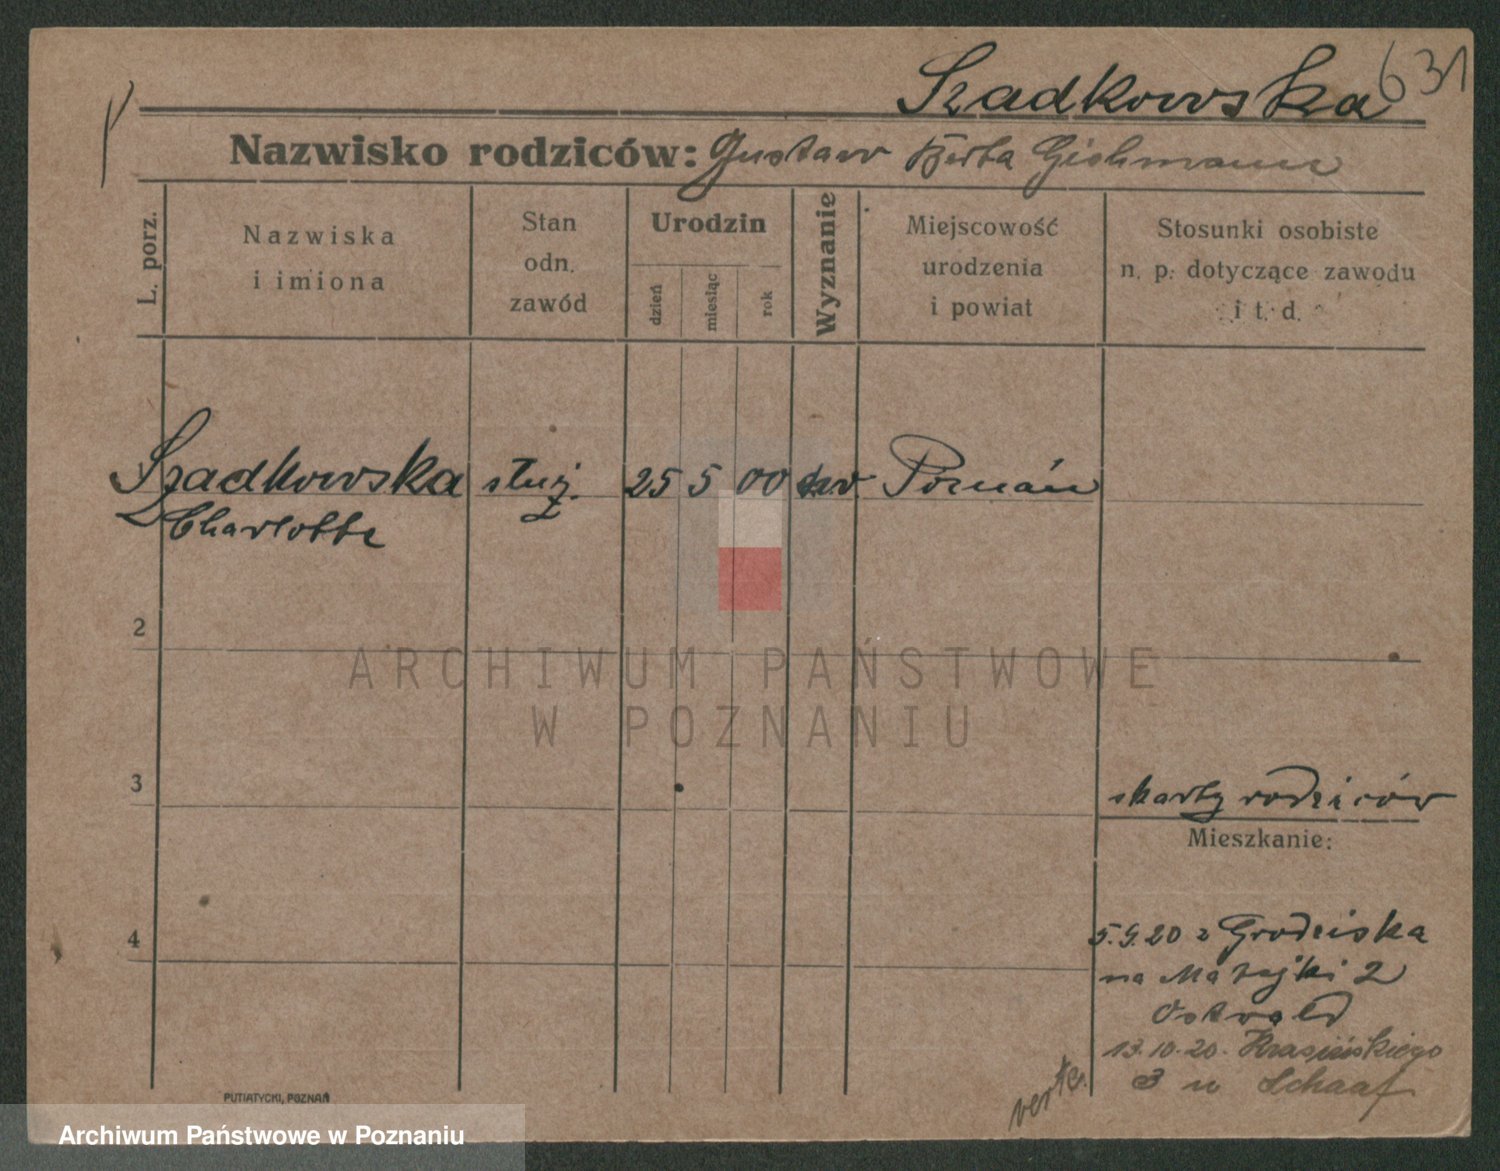 Szadkowska 631
Nazwisko rodziców: Gustaw Berta Gichmann
L. porz.
Nazwiska
i imiona
Stan
odn.
zawód
Urodzin
dzień
miesiąc
rok
Wyznanie
Miejscowość
urodzenia
i powiat
Stosunki osobiste
n. p. dotyczące zawodu
i t. d.
Szadkowska służ. 25 5 00 Poznań
Charlotte
2
ARCHIWUM PAŃSTWOWE
W POZNANIU
3
z karty rodziców
Mieszkanie:
4
5.9.20 z Grodziska
na Matejki 2
Ostwald
13.10.20. Krasińskiego
3 u Schaaf
verte.
PUTIATYCKI, POZNAŃ
Archiwum Państwowe w Poznaniu